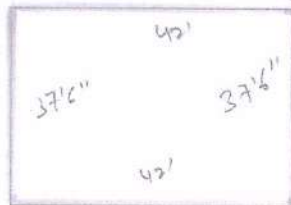 42'
37'6"
37'6"
42'